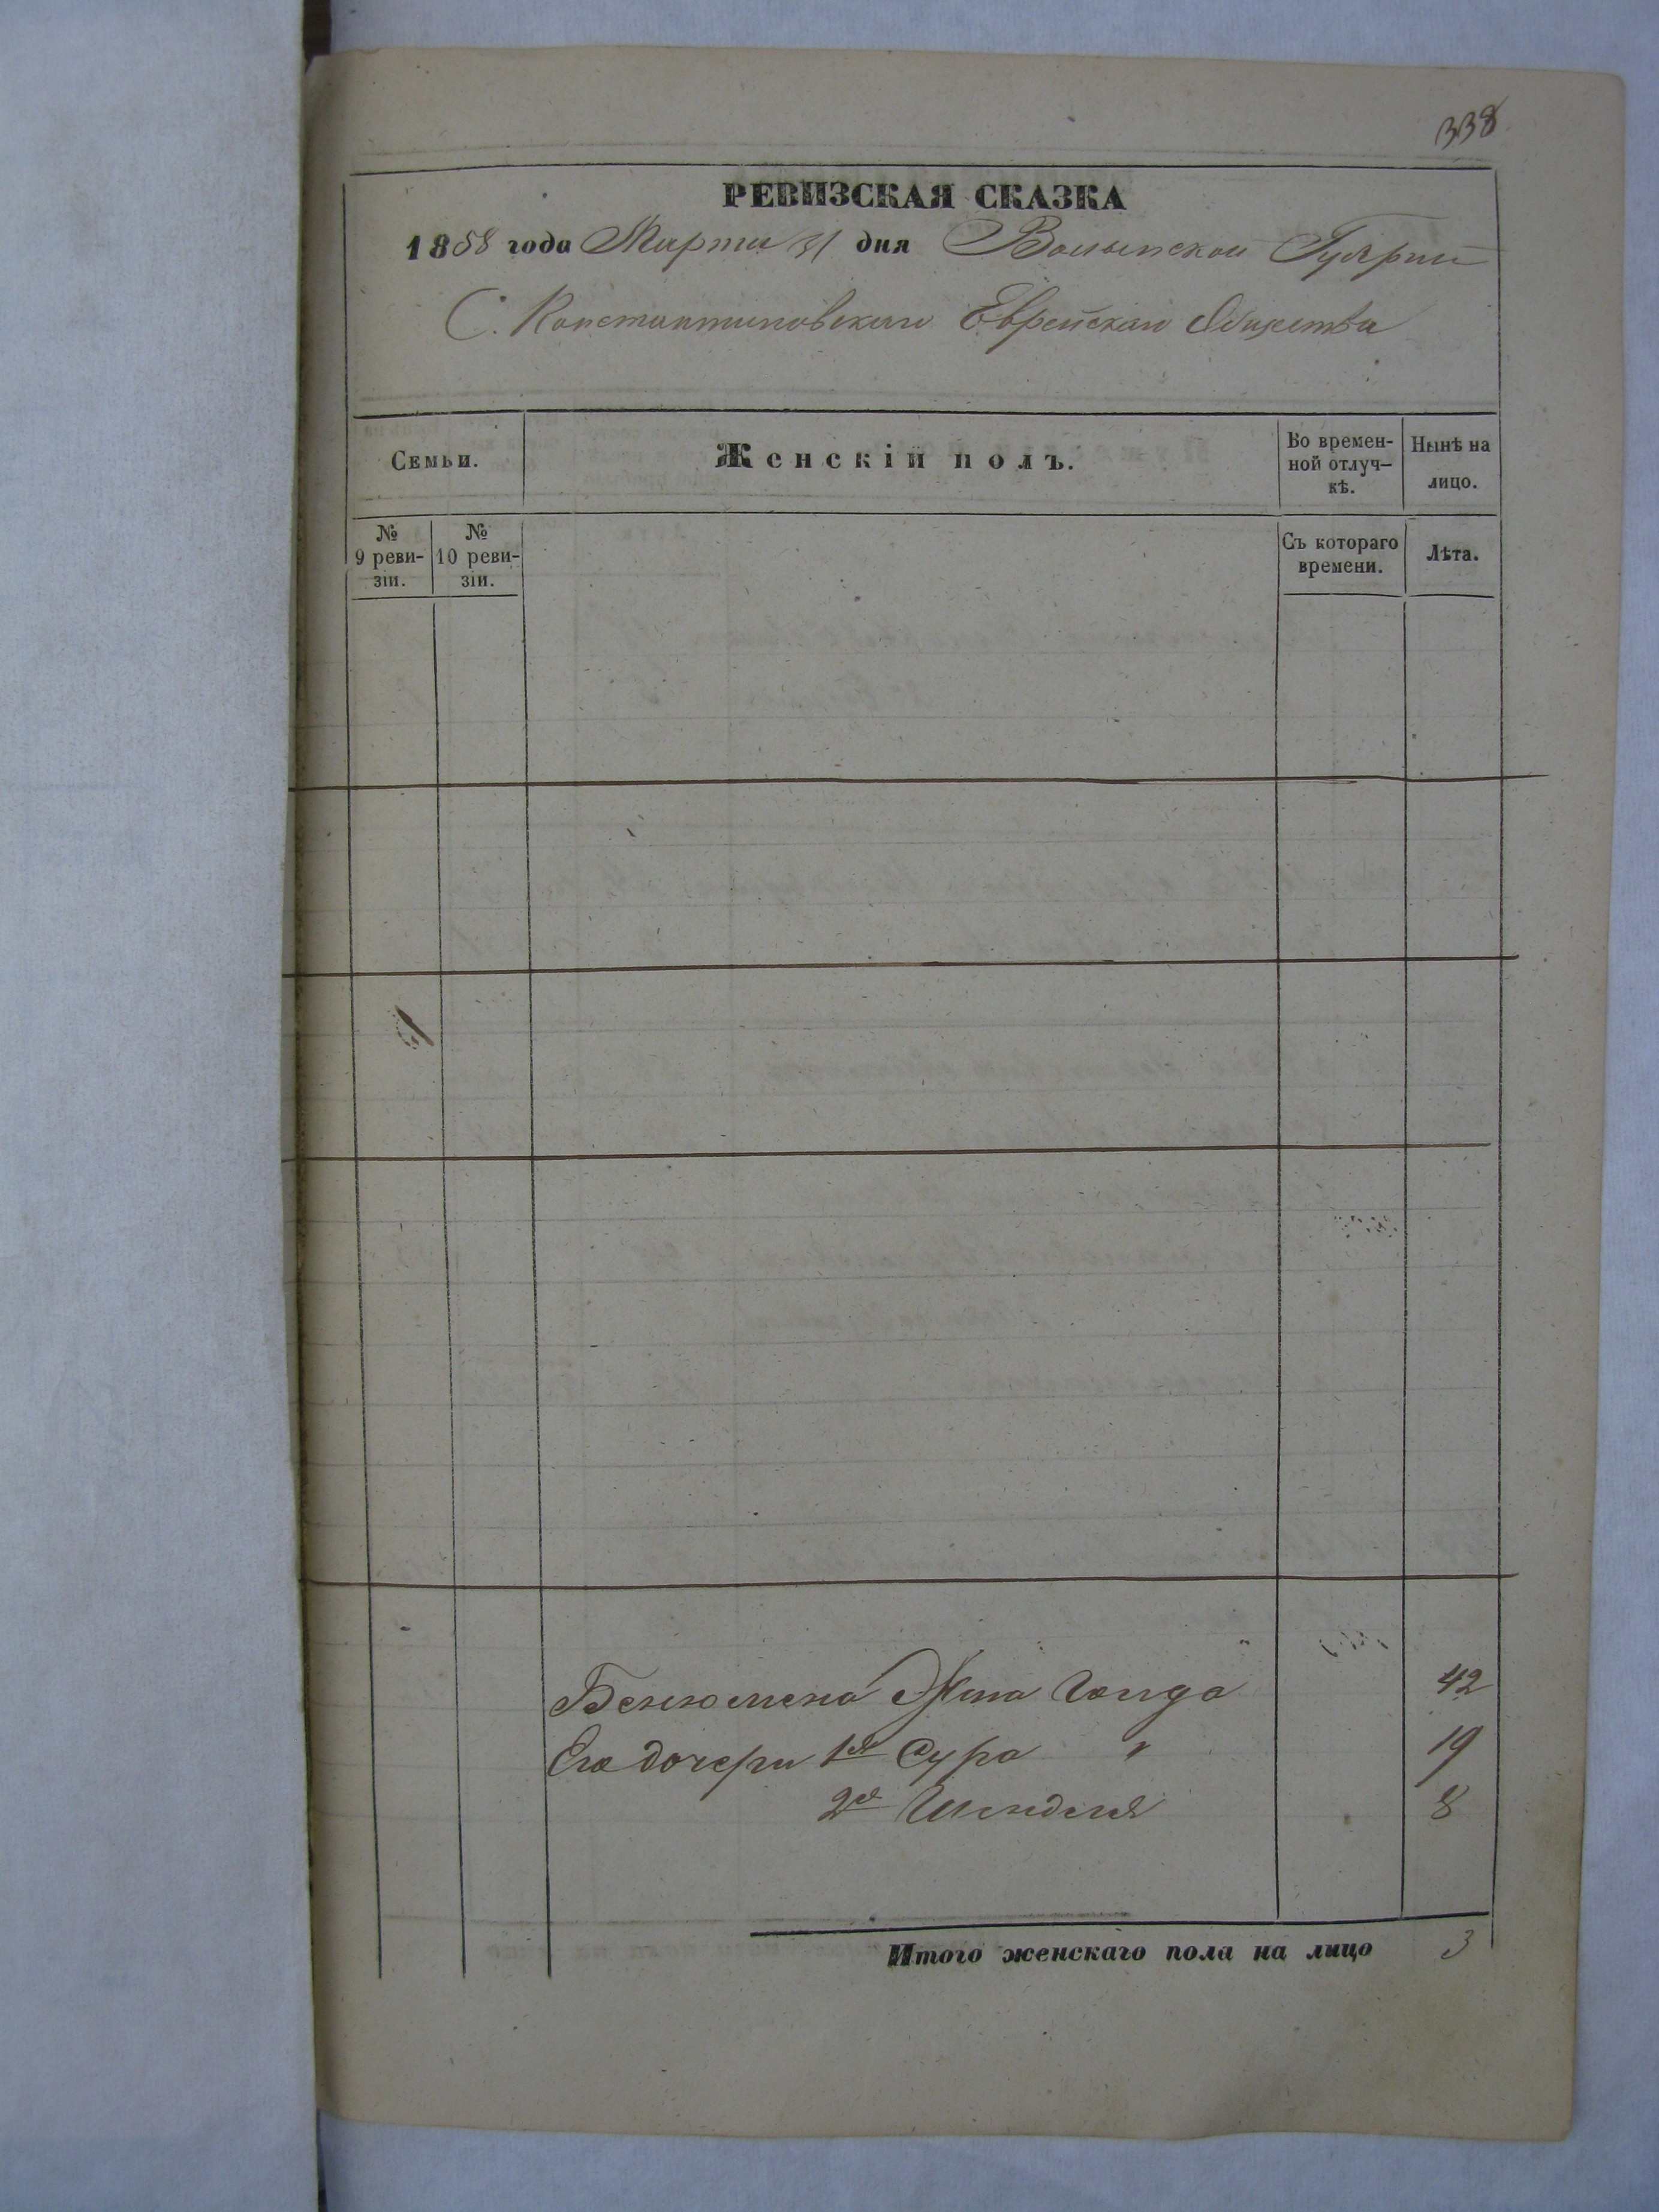 338
РЕВИЗСКАЯ СКАЗКА
1858 года Марта 31 дня Волынской Губернии
С. Константиновскаго Еврейскаго Общества
Семьи.
Женскій полъ.
Во времен-
ной отлуч-
кѣ.
Нынѣ на
лицо.
№
9 реви-
зіи.
№
10 реви-
зіи.
Съ котораго
времени.
Лѣта.
Бенюмена Жена 42
Его дочери 1я Сура " 19
2я Шенделя 8
Итого женскаго пола на лицо 3